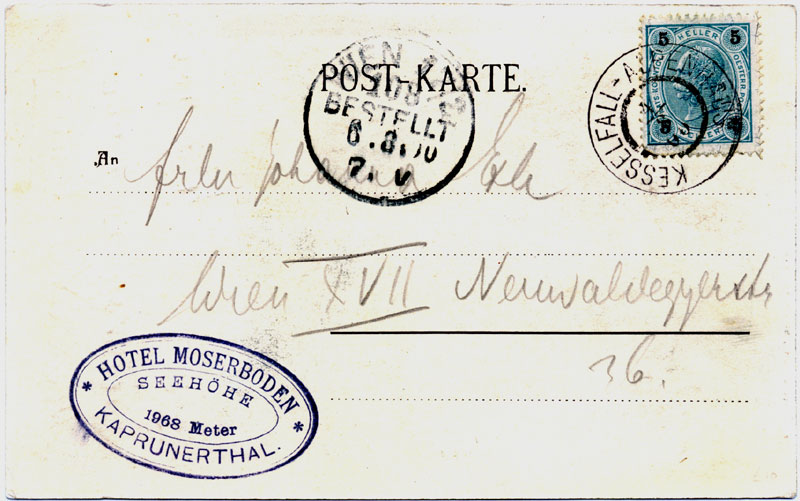 POST-KARTE.
WIEN
BESTELLT
6.8.00
7. V
5 HELLER 5
5 5
KESSELFALL-ALPENHAUS
An
Frln Johanna
Wien XVII Neuwaldeggerstr
36.
* HOTEL MOSERBODEN *
SEEHÖHE
1968 Meter
KAPRUNERTHAL.